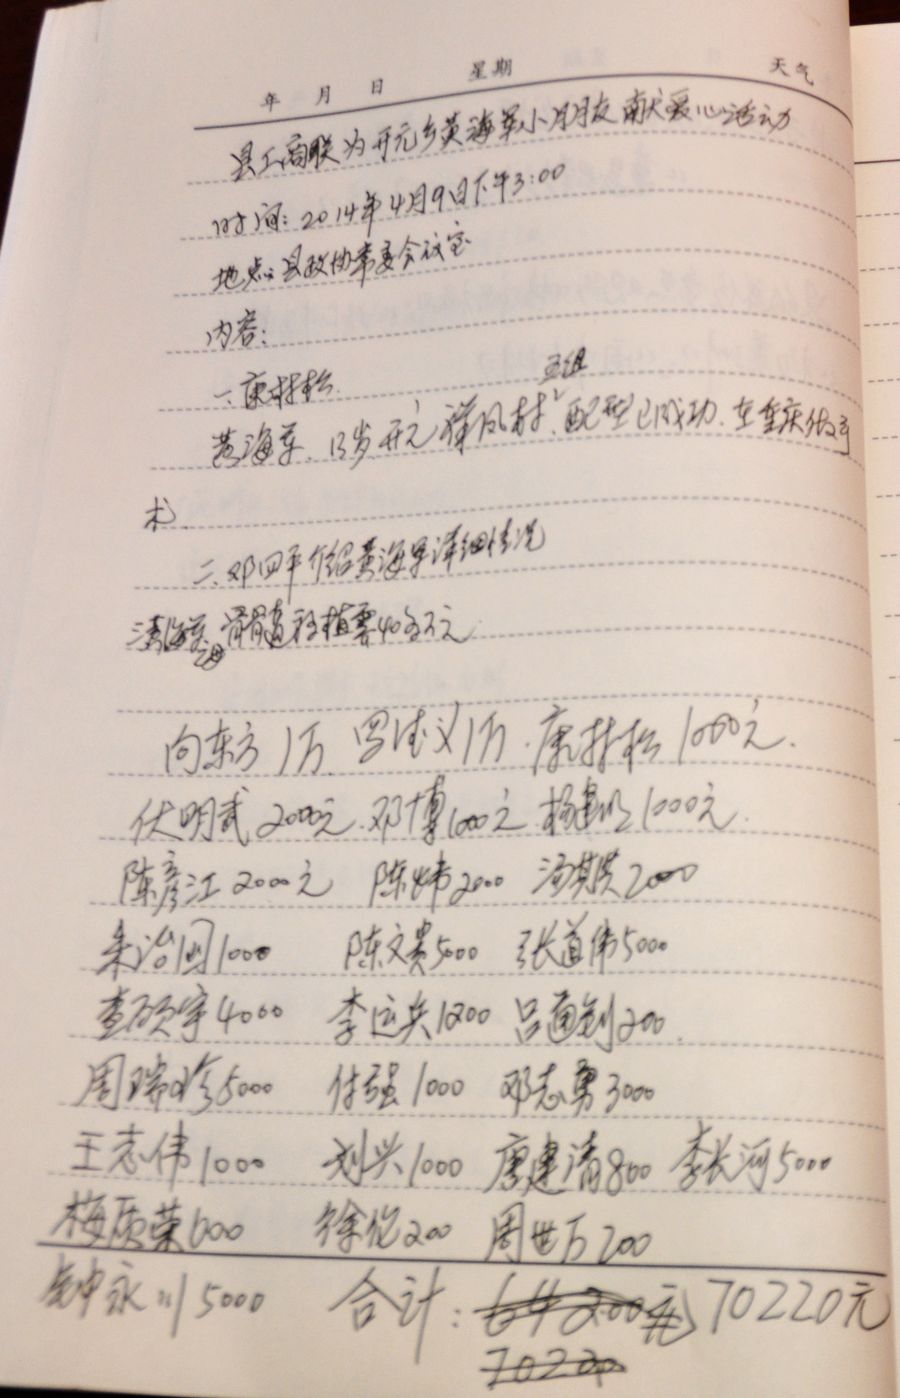 年 月 日 星期 天气
县工商联为开元乡黄海军小朋友献爱心活动
时间: 2014年4月9日下午3:00
地点: 县政协常委会议室
内容:
一、康树松
五组
黄海军、13岁 开元 祥凤村、配型已成功、在重庆做手
术.
二、邓四平介绍黄海军详细情况
海军 骨髓移植需40多万元
向东方 1万 罗德义1万. 康树松 1000元.
伏明武 2000元. 邓博1000元 杨建 1000元.
陈彦江 2000元 陈炜2000 汤其 2000
朱治国1000 陈文贵5000 张道伟5000
4000 李运兵1200 吕 200
周瑞珍5000 付强1000 邓志勇3000
王志伟1000 刘兴1000 唐建清800 李长河5000
梅质荣 徐伦200 周世万200
永川5000 合计: 64200元 70220元
70220